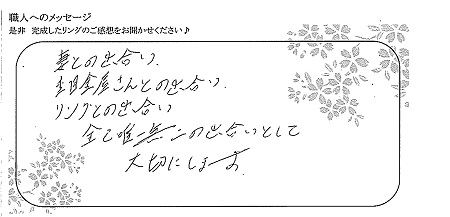 職人へのメッセージ
是非 完成したリングのご感想をお聞かせください♪
妻との出合い、
杢目金屋さんとの出合い、
リングとの出合い
全て唯一無二の出合いとして
大切にします。